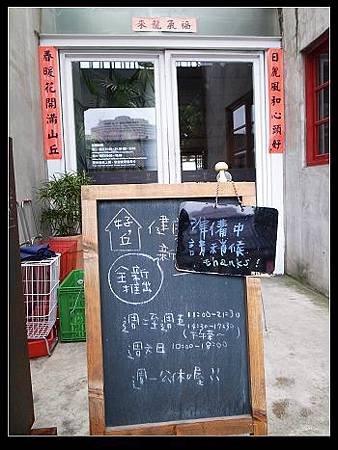 來龍氣福
春暖花開滿山丘
日麗風和心頭好
準備中
請稍候
thanks!
好丘
健康
新
全新
推出
週二至週五 11:00-21:30
14:30-17:30
(下午茶~)
週六日 10:00-18:00
週一公休喔!!